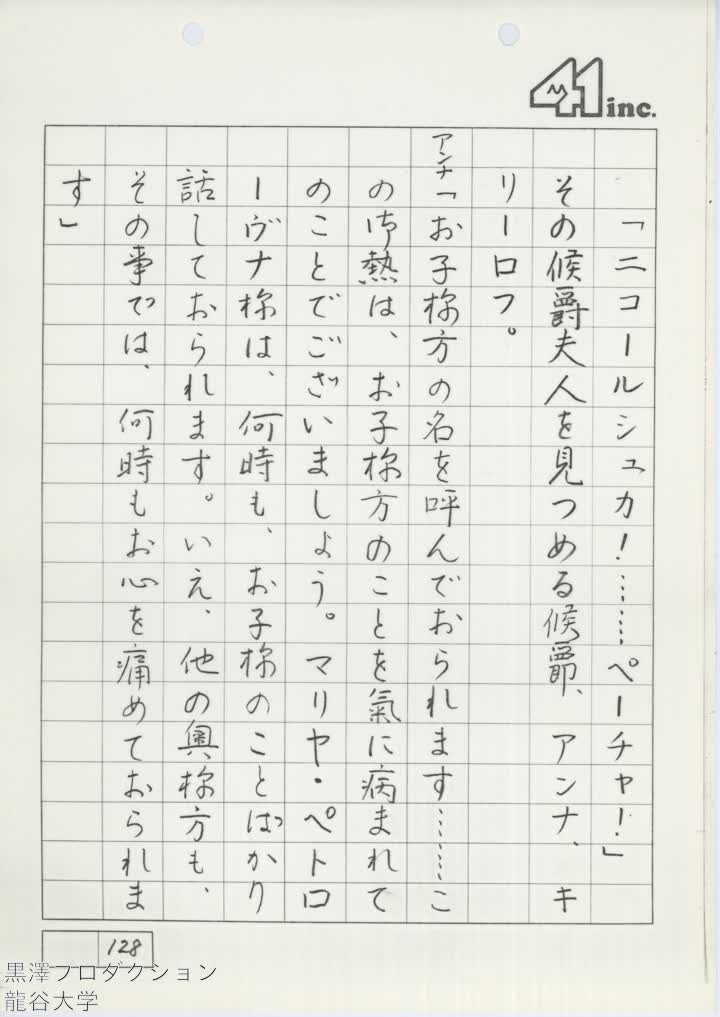 41 inc.
「ニコールシュカ！……ペーチャ！」
その候爵夫人を見つめる候爵、アンナ、キ
リーロフ。
アンナ「お子様方の名を呼んでおられます……こ
の御熱は、お子様方のことを氣に病まれて
のことでございましょう。マリヤ・ペトロ
ーヴナ様は、何時も、お子様のことばかり
話しておられます。いえ、他の奥様方も、
その事では、何時もお心を痛めておられま
す」
128
黒澤プロダクション
龍谷大学